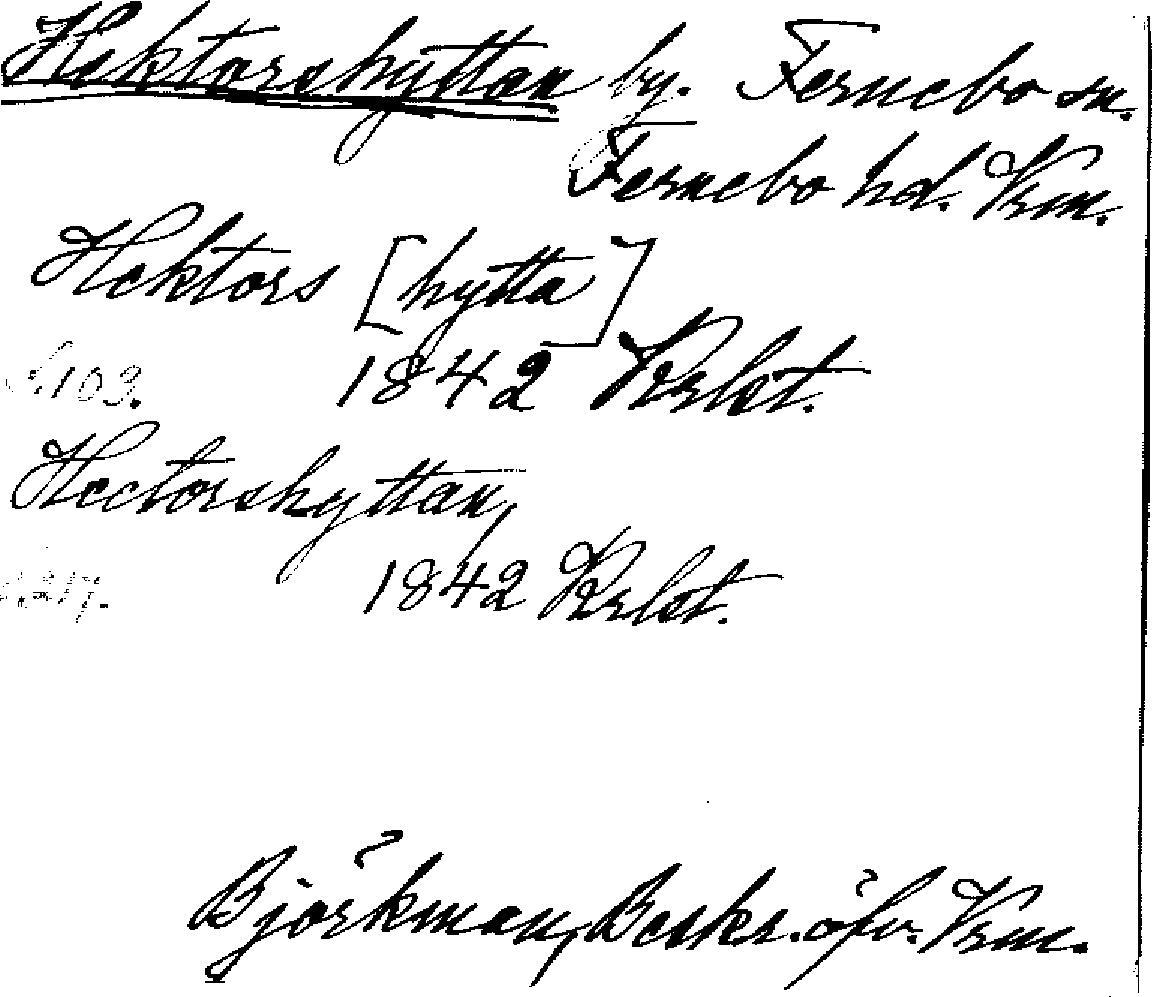 Hektorshyttan by. Fernebo sn.
Fernebo hd. Vrm.
Hektors [hytta]
103. 1842 Krlst.
Hectorshyttan,
1842 Krlst.
Björkman, Beskr. öfv. Vrm.